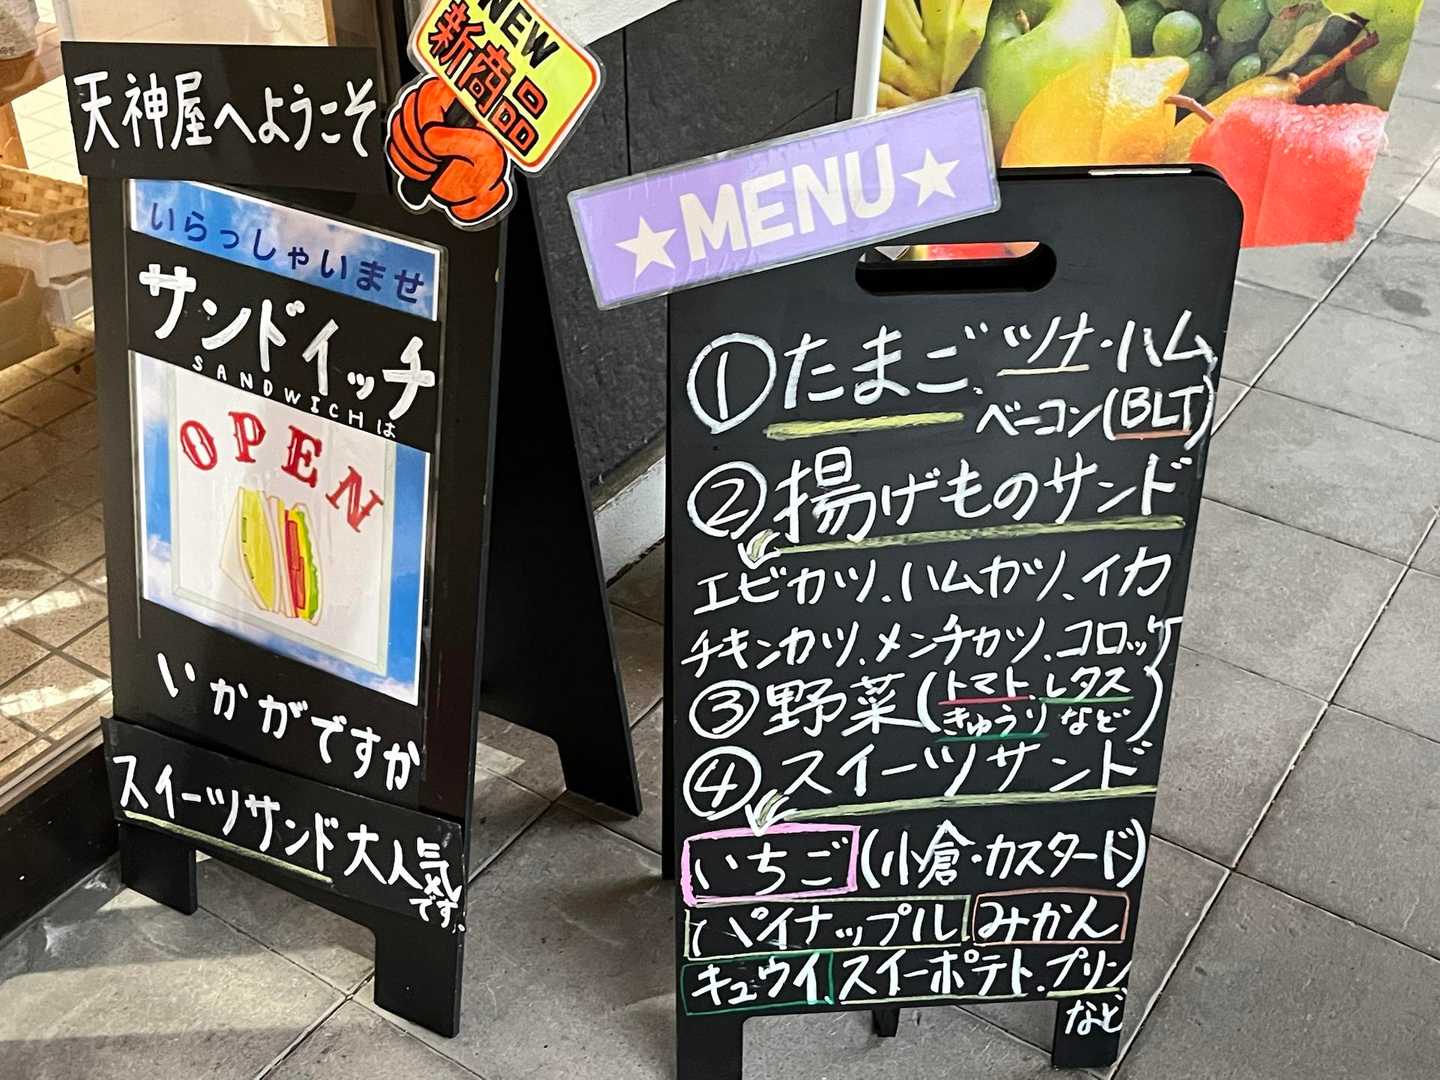 天神屋へようこそ
NEW
新商品
いらっしゃいませ
サンドイッチ
SANDWICHは
OPEN
いかがですか
スイーツサンド大人気
です。
★MENU★
①たまご、ツナ・ハム、
ベーコン(BLT)
②揚げものサンド
エビカツ、ハムカツ、イカ
チキンカツ、メンチカツ、コロッケ
③野菜(トマト、レタス
きゅうりなど)
④スイーツサンド
いちご(小倉・カスタード)
パイナップル、みかん
キュウイ、スイーポテト、プリン、
など